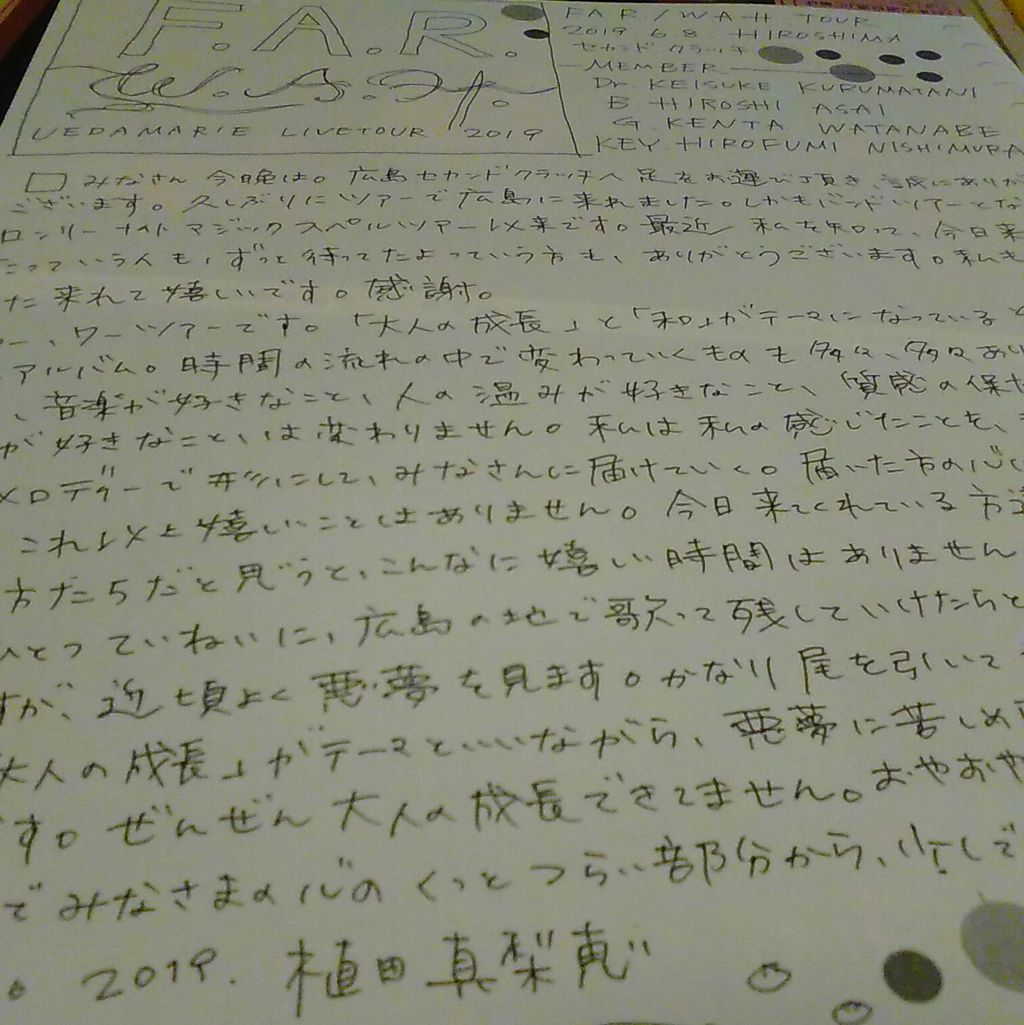 F.A.R.
W.A.H.
UEDA MARIE LIVETOUR 2019
F.A.R. / W.A.H TOUR
2019 6.8. HIROSHIMA
セカンド クラッチ
MEMBER
Dr. KEISUKE KURUMATANI
B HIROSHI ASAI
G. KENTA WATANABE
KEY. HIROFUMI NISHIMURA
みなさん 今晩は。広島セカンドクラッチへ 足をお運び頂き、誠にありが
ございます。久しぶりにツアーで広島に来れました。しかもバンドツアーとな
ロンリーナイト マジックスペルツアー以来です。最近 私を知って、今日来
っていう人も、ずっと待ってたよっていう方も、ありがとうございます。私も
た来れて嬉しいです。感謝。
ー、ワーツアーです。「大人の成長」と「和」がテーマになっている
アルバム。時間の流れの中で変わっていくものも多々、多々あり
、音楽が好きなこと、人の温みが好きなこと、質感の保
が好きなこと、は変わりません。私は私の感じたことを、
メロディーで形にして、みなさんに届けていく。届いた方の心に
これ以上嬉しいことはありません。今日来てくれている方達
方たちだと思うと、こんなに嬉しい時間はありません
ひとつていねいに、広島の地で歌って残していけたらと
すが、近頃よく悪夢を見ます。かなり尾を引いて
大人の成長」がテーマといいながら、悪夢に苦しめ
す。ぜんぜん大人の成長できてません。おやおや
でみなさまの心のくっとつらい部分から、少しで
。2019. 植田真梨恵